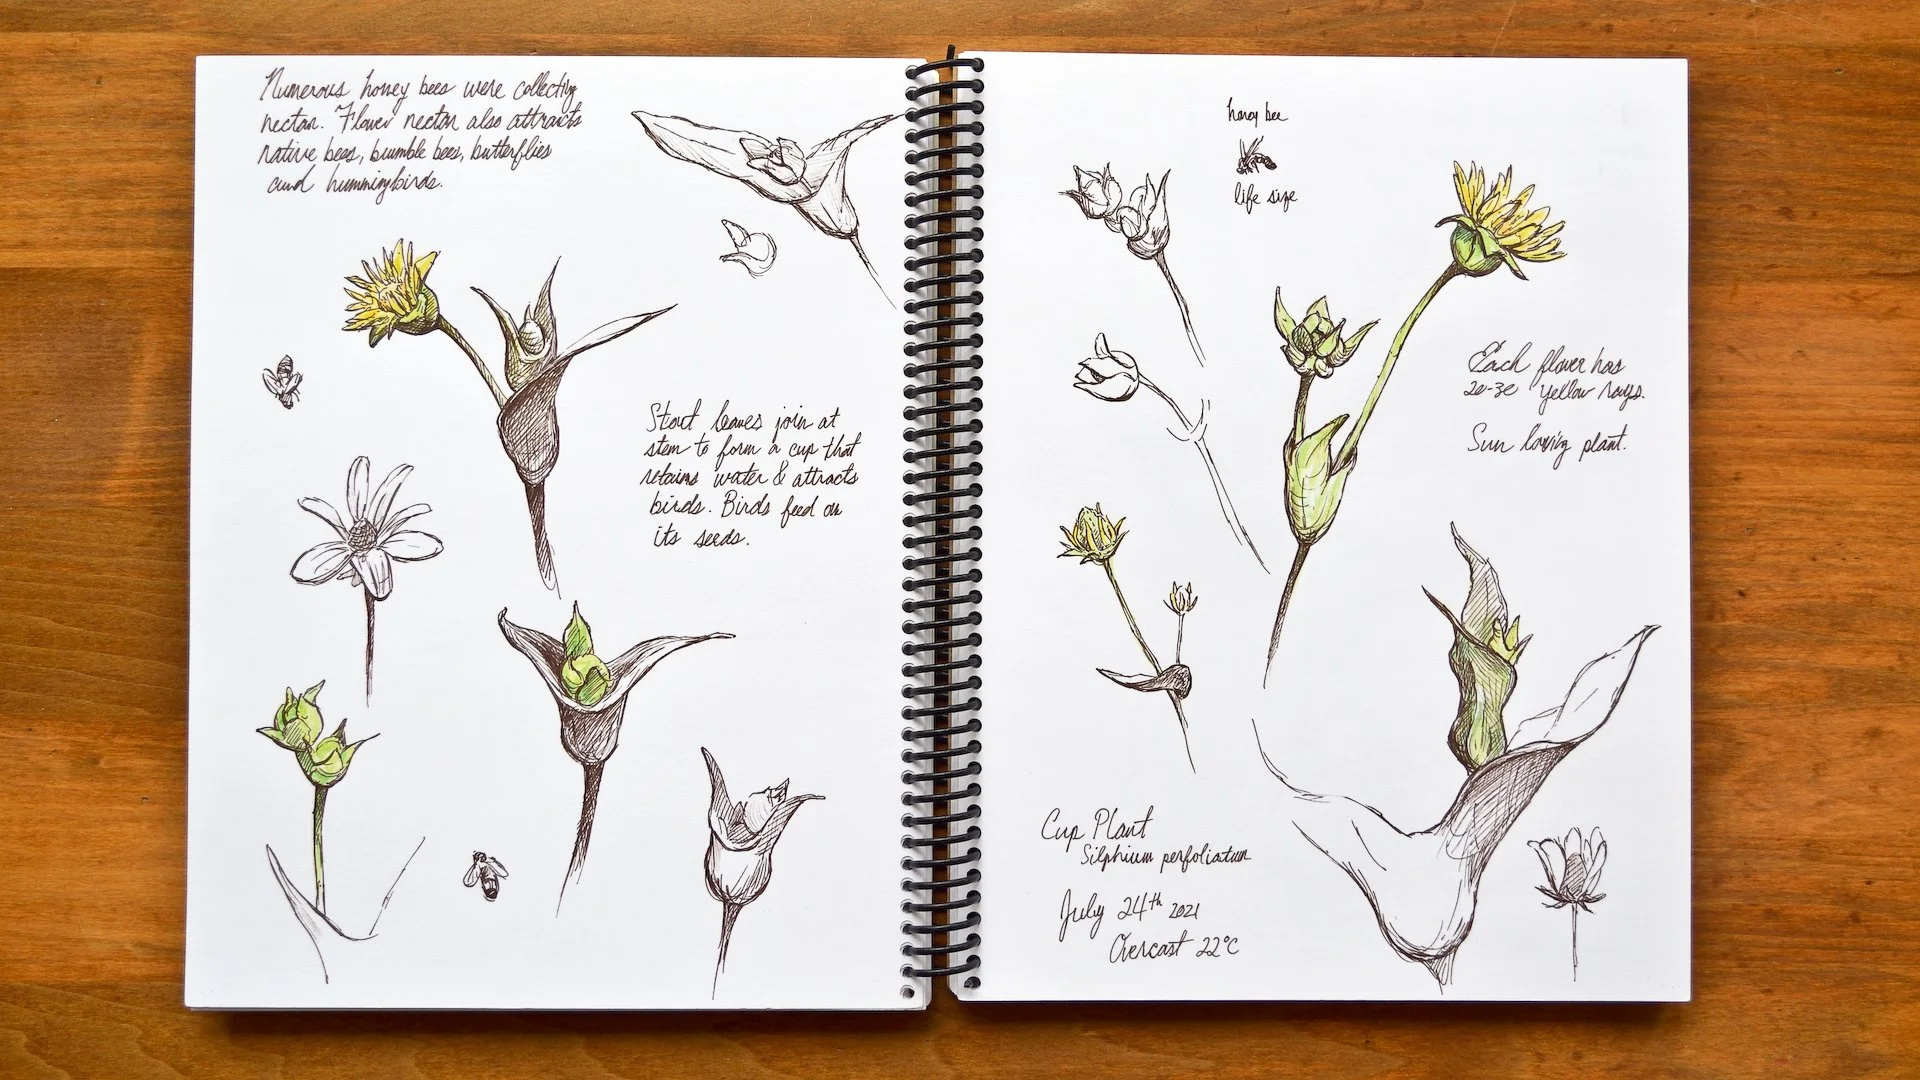 Numerous honey bees were collecting
nectar. Flower nectar also attracts
native bees, bumble bees, butterflies
and hummingbirds.
Stout leaves join at
stem to form a cup that
retains water & attracts
birds. Birds feed on
its seeds.
honey bee
life size
Each flower has
20-30 yellow rays.
Sun loving plant.
Cup Plant
Silphium perfoliatum
July 24th 2021
Overcast 22°C